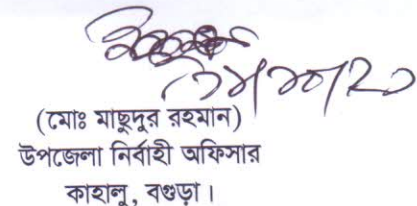 (মোঃ মাছুদুর রহমান)
উপজেলা নির্বাহী অফিসার
কাহালু, বগুড়া।